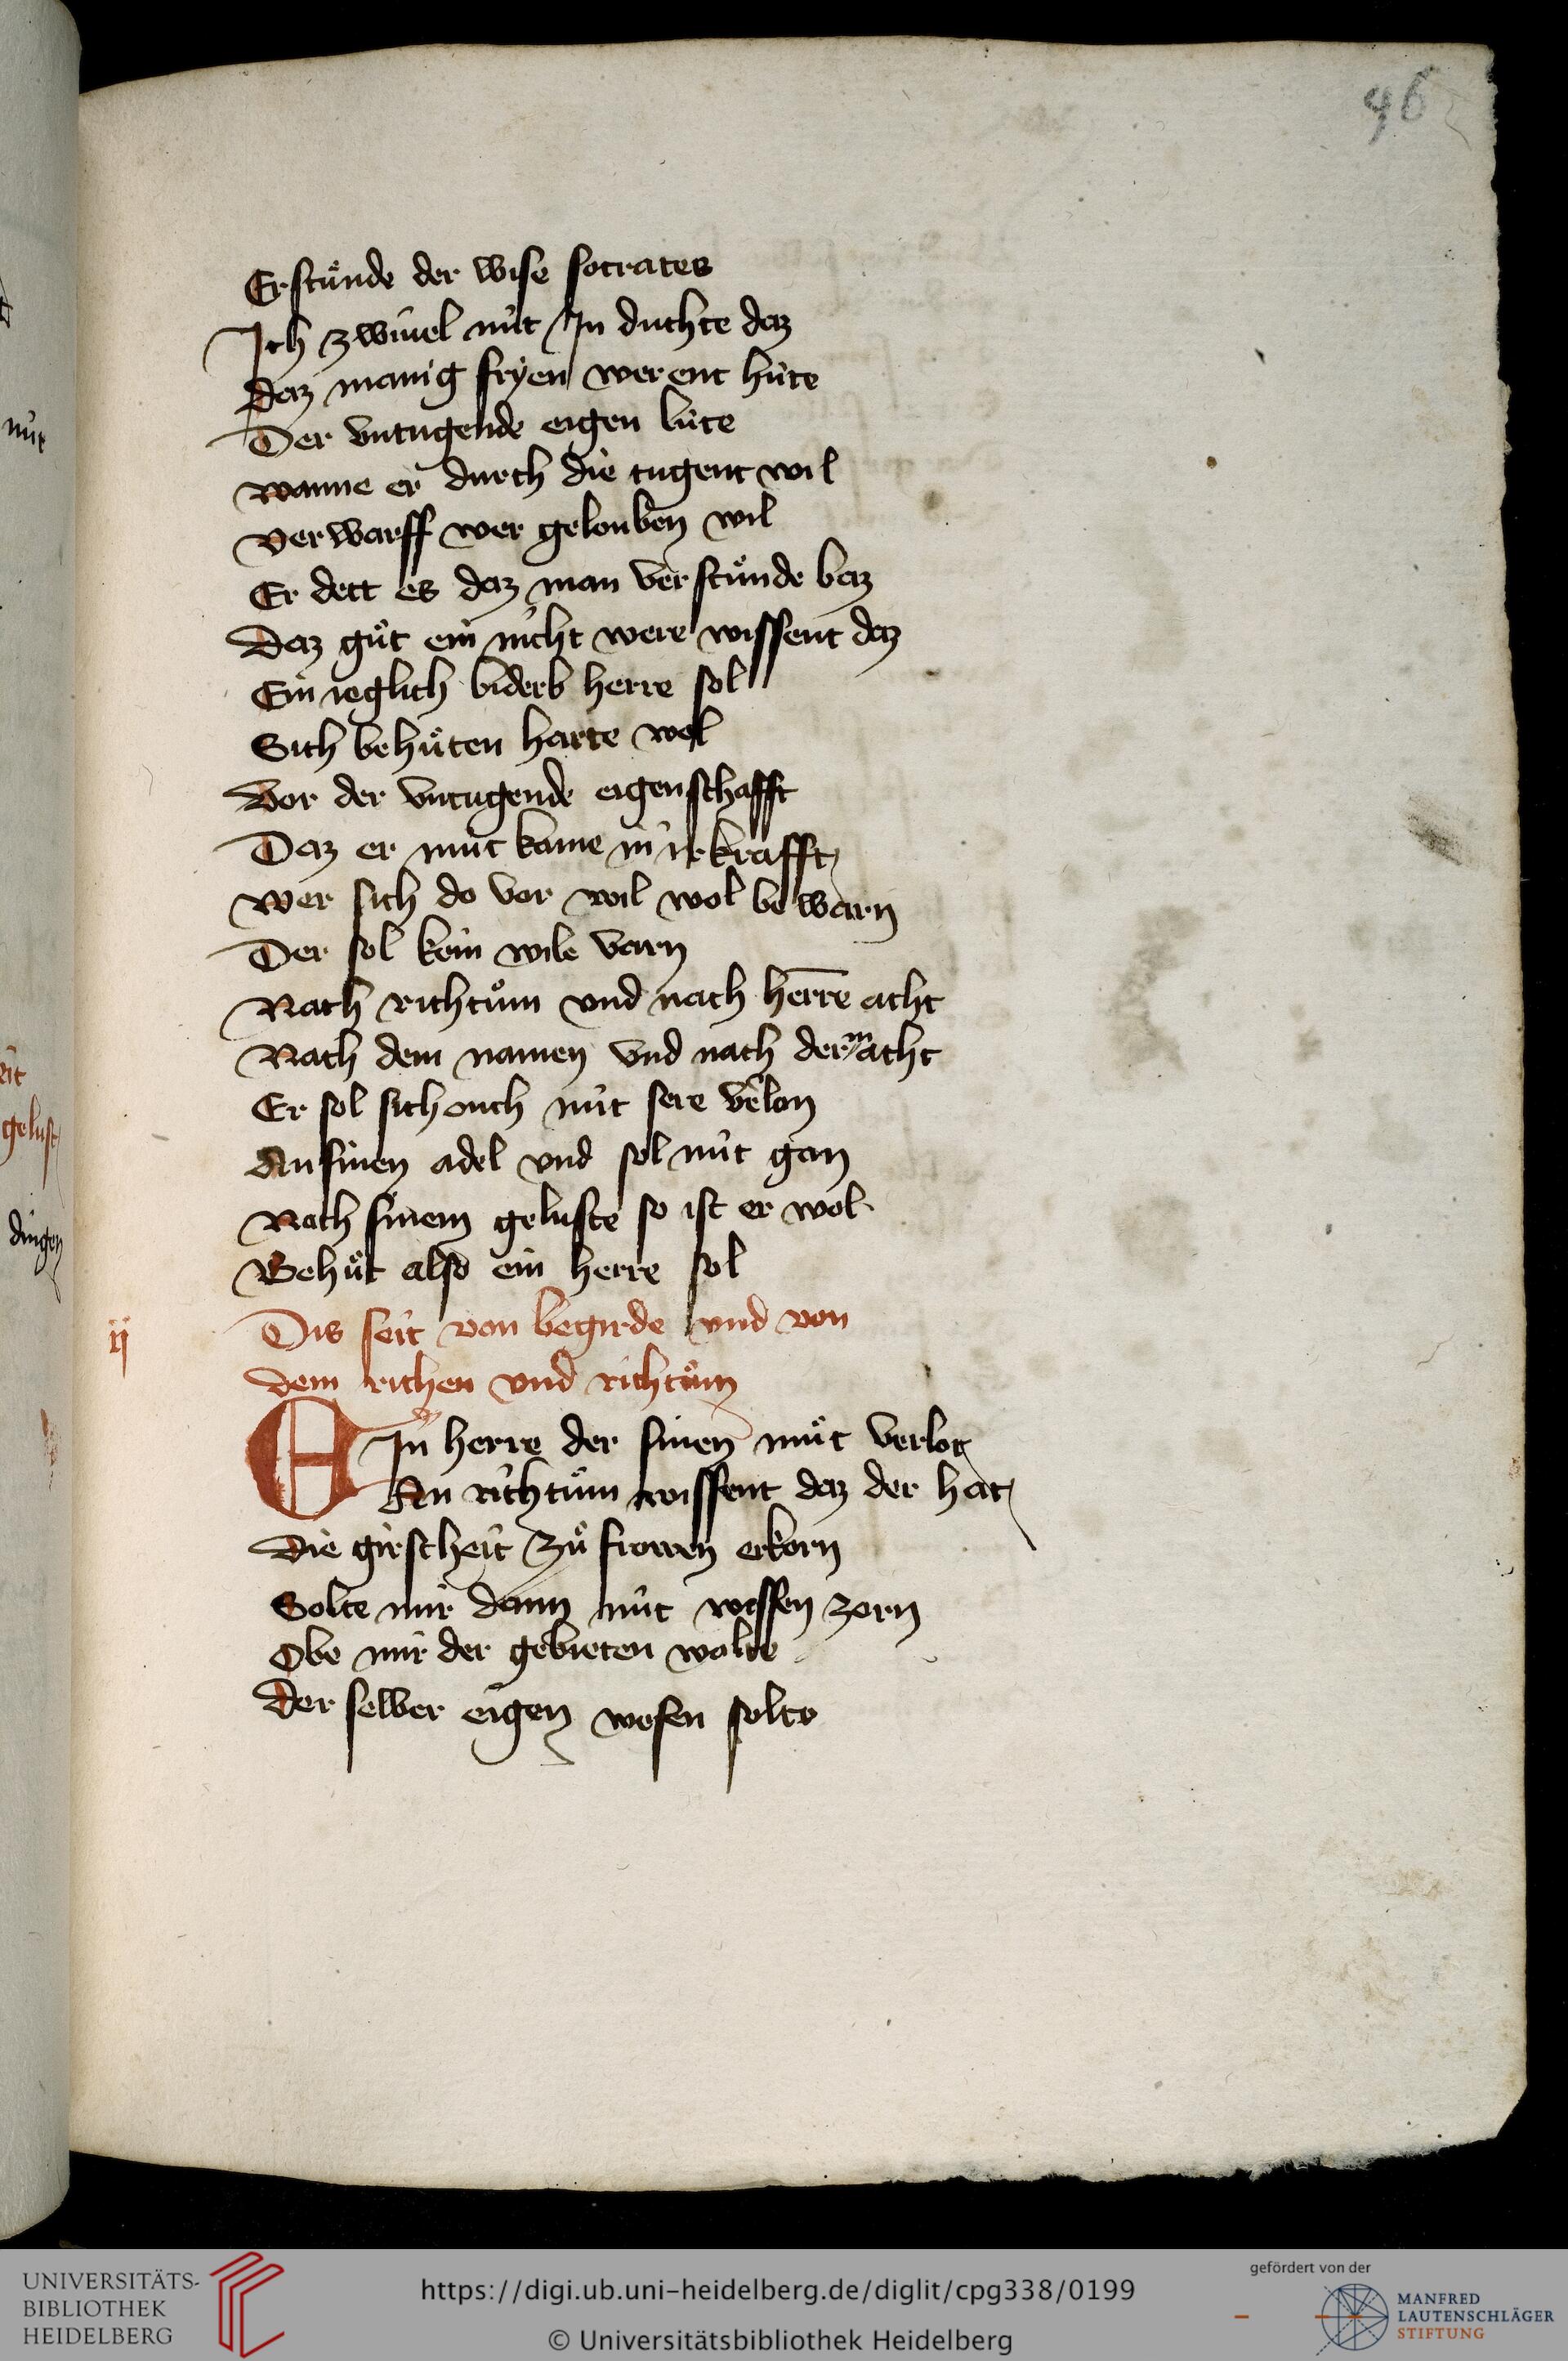 96
Erstuͦnde der wise socrates
Ich zwiuel nuͤt In duchte daz
Daz manig fryen werent huͤte
Der vntugende eigen luͤte
wanne er durch die tugent wil
verwarff wer gelouben wil
Er dett es daz man verstuͦnde baz
Daz guͦt ein nicht were wissent daz
Ein ieglich biderb herre sol
Sich behuͤten harte wol
Vor der vntugende eigenschafft
Daz er nuͤt kome in ir krafft
wer sich do vor wil wol bewarn
Der sol kein wile varn
Nach richtuͦm vnd nach herre̅ acht
Nach dem namen vnd nach der macht
Er sol sich ouch nuͤt sere v̾lon
An sinen adel vnd sol nuͤt gan
Noch sinem geluste so ist er wol
Behuͦt also ein herre sol
ij
Dis seit von begirde vnd von
dem richen vnd richtuͦm
EIn herre der sinen muͦt verlot
An richtuͦm wissent daz der hat
Die girscheit zuͦ frowen erkorn
Solte mir dann nuͤt wessen zorn
Obe mir der gebieten wolte
Der selber eigen wesen solte
nuͤt
gelust
dingen
UNIVERSITÄTS-
BIBLIOTHEK
HEIDELBERG
https://digi.ub.uni-heidelberg.de/diglit/cpg338/0199
© Universitätsbibliothek Heidelberg
gefördert von der
MANFRED
LAUTENSCHLÄGER
STIFTUNG